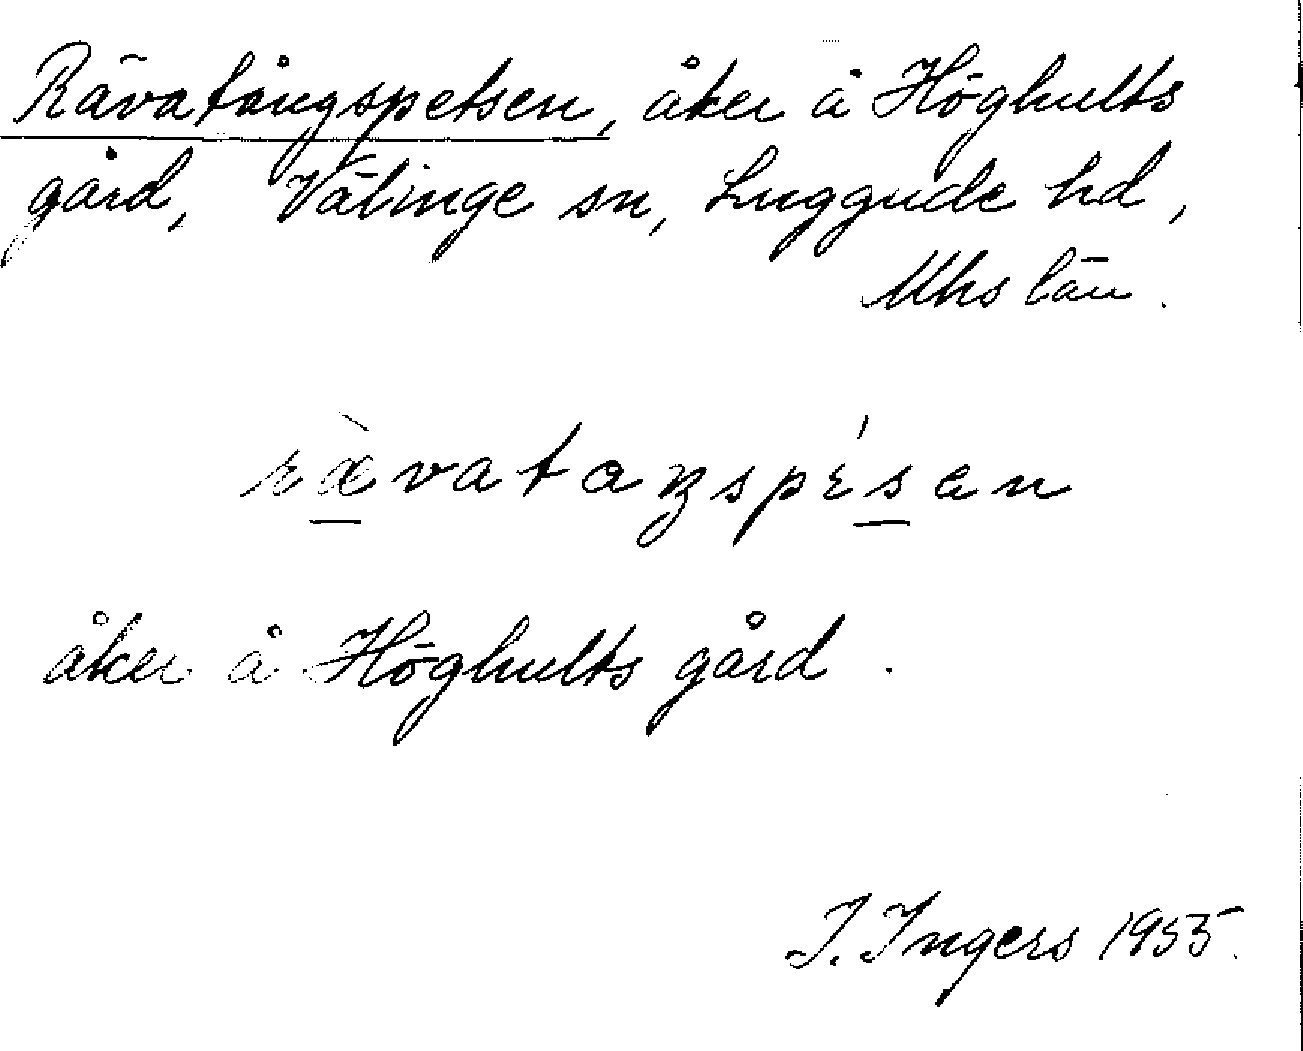 Rävatångspetsen, åker å Höghults
gård, Välinge sn, Luggude hd,
Mhs län.
rævataŋspésan
åker å Höghults gård.
I. Ingers 1955.